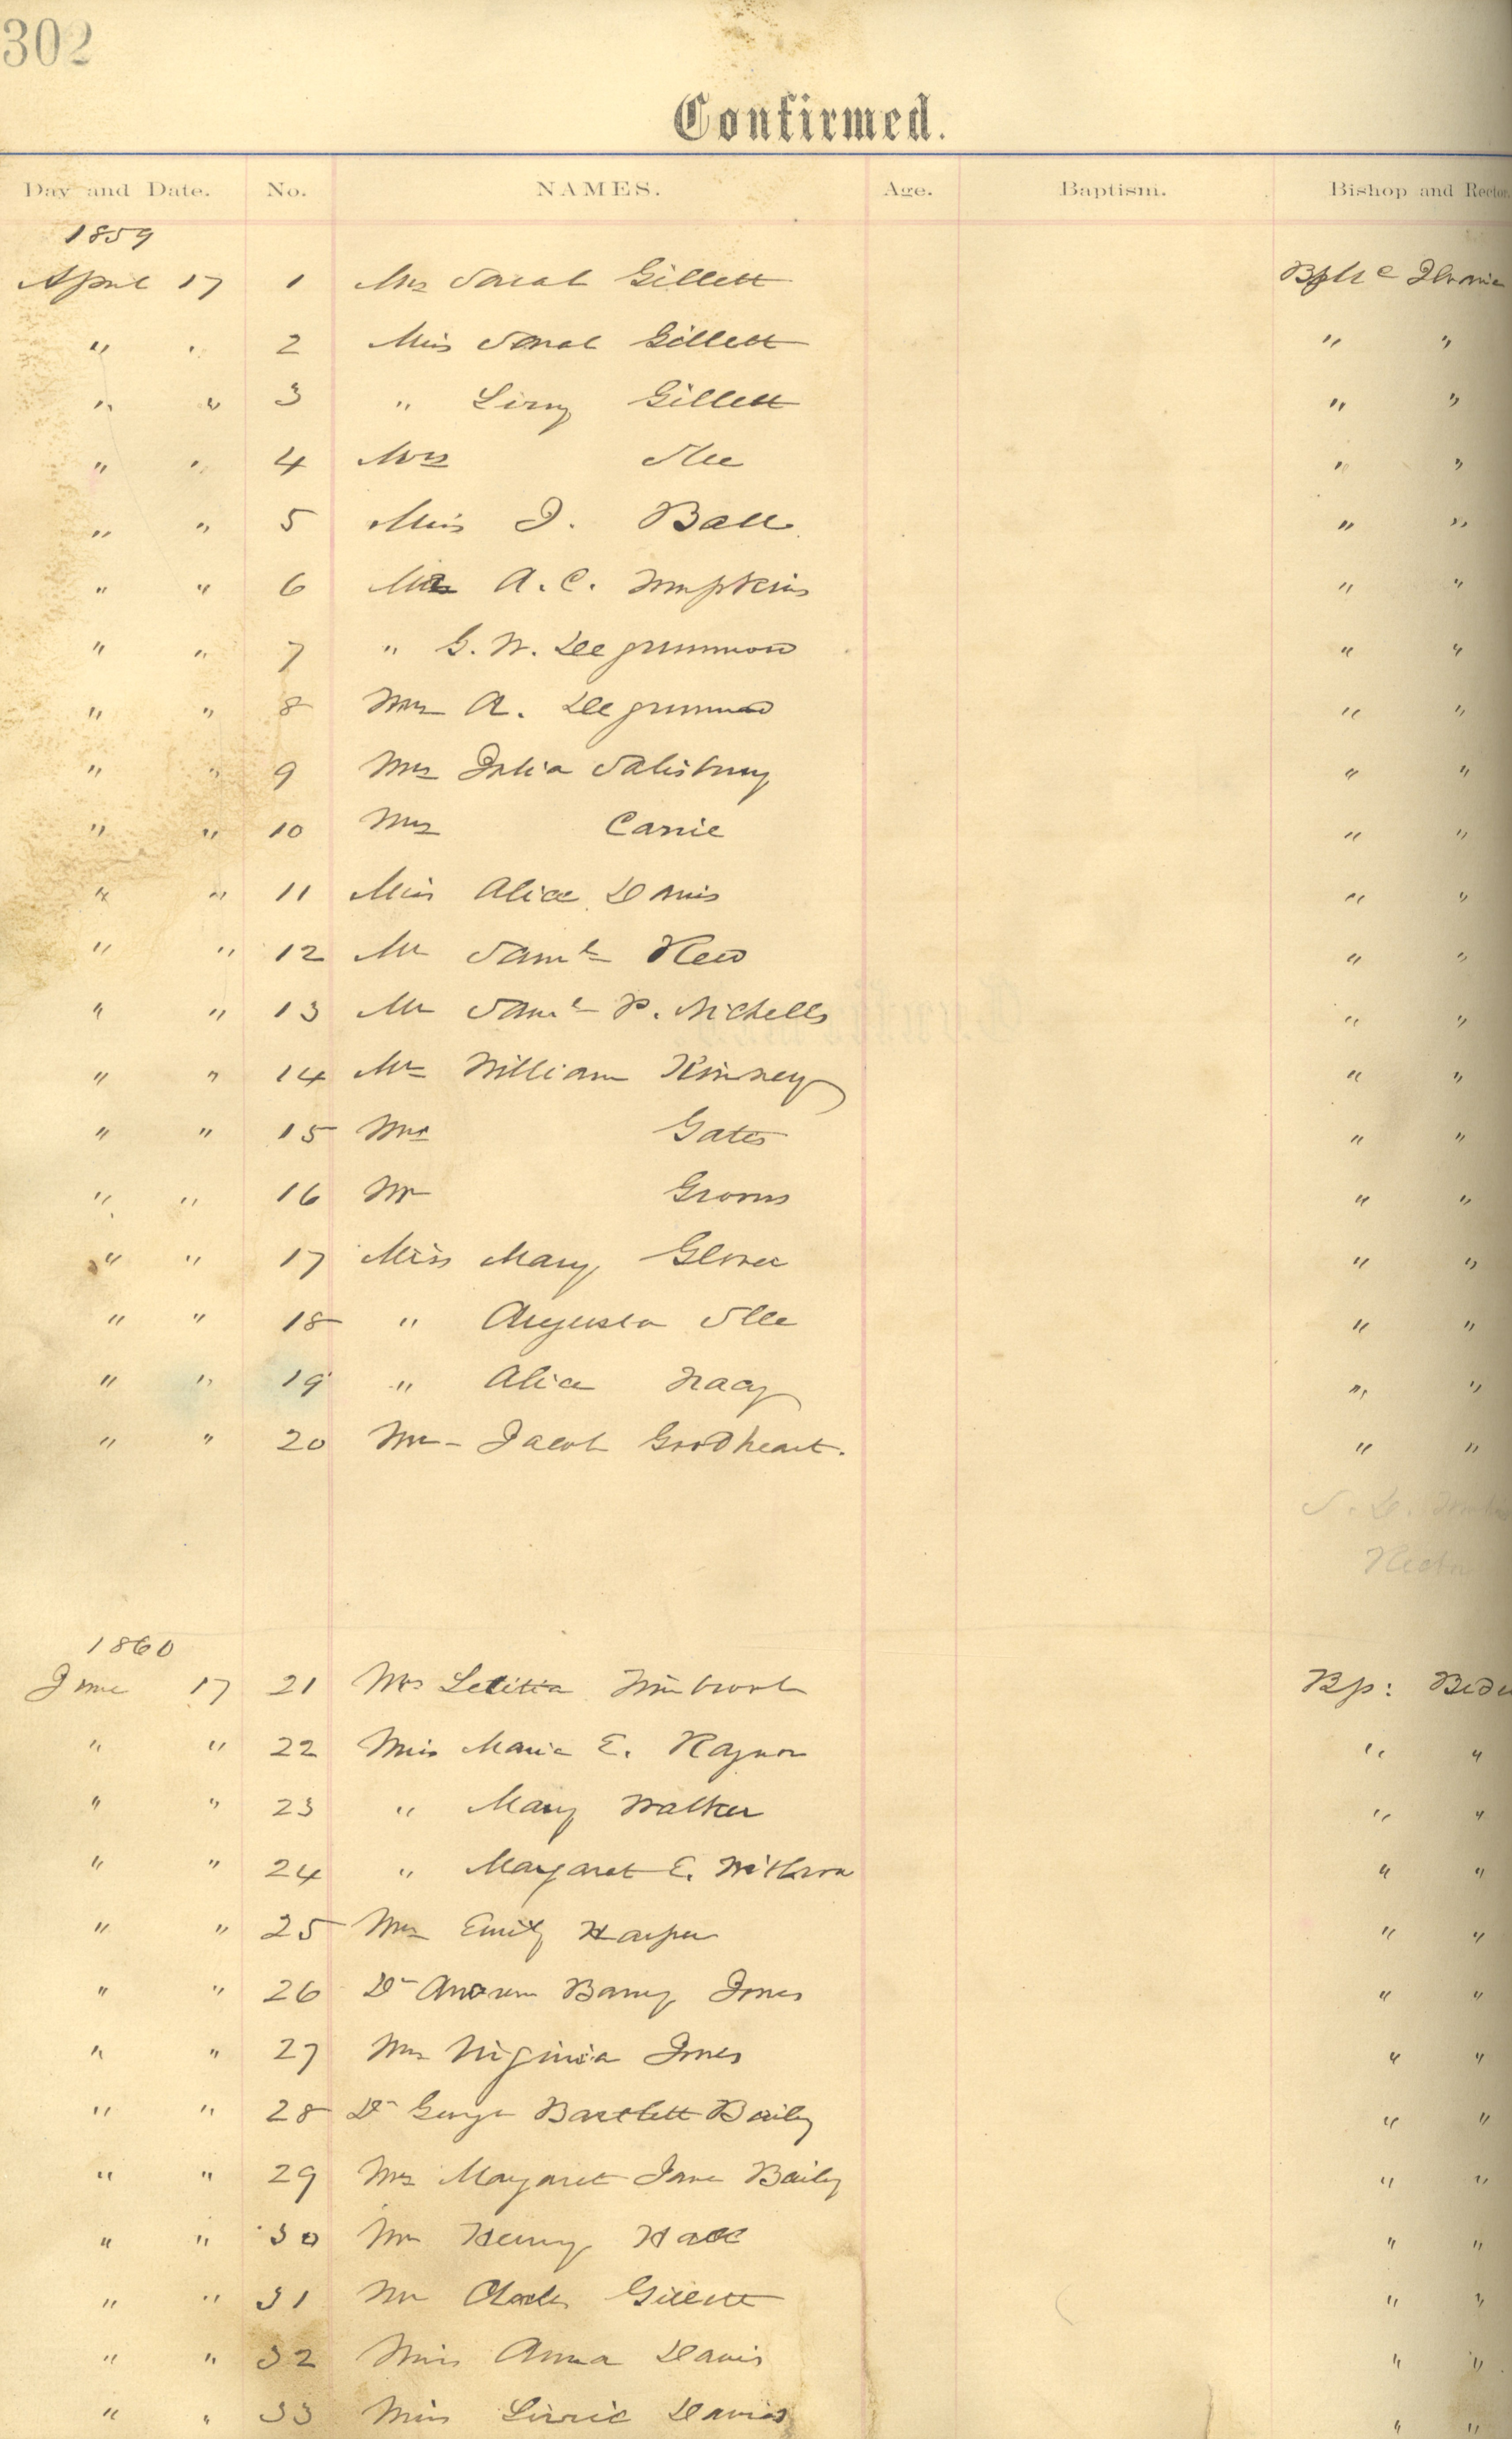 302
Confirmed.
Day and Date. No. NAMES. Age. Baptism. Bishop and Rector
1859
April 17 1 Mrs Sarah Gillett Bp Mc
" " 2 Miss Sarah Gillett " "
" " 3 " Lizzy Gillett " "
" " 4 Mrs " "
" " 5 Miss J. Ball " "
" " 6 Mrs A. C. Tompkins " "
" " 7 " G. W. Deegrummond " "
" " 8 Mrs A. Deegrummond " "
" " 9 Mrs Julia Salisbury " "
" " 10 Mrs Carrie " "
" " 11 Miss Alice Davis " "
" " 12 Mr Saml " "
" " 13 Mr Saml P. Nichells " "
" " 14 Mr William Kinney " "
" " 15 Mrs Gates " "
" " 16 Mr Grooms " "
" " 17 Miss Mary Glover " "
" " 18 " Augusta " "
" " 19 " Alice Tracy " "
" " 20 Mr - Jacob Goodheart. " "
S. D.
Rector
1860
June 17 21 Mrs Letitia Bp:
" " 22 Miss Maria E. Raynor " "
" " 23 " Mary Walker " "
" " 24 " Margaret E. " "
" " 25 Mrs Emily Harper " "
" " 26 Dr Andrew Barry Jones " "
" " 27 Mrs Virginia Jones " "
" " 28 Dr George Bartlett Baily " "
" " 29 Mrs Margaret Jane Baily " "
" " 30 Mr Henry Hall " "
" " 31 Mr Charles Gillett " "
" " 32 Miss Anna Davis " "
" " 33 Miss Lizzie Davis " "